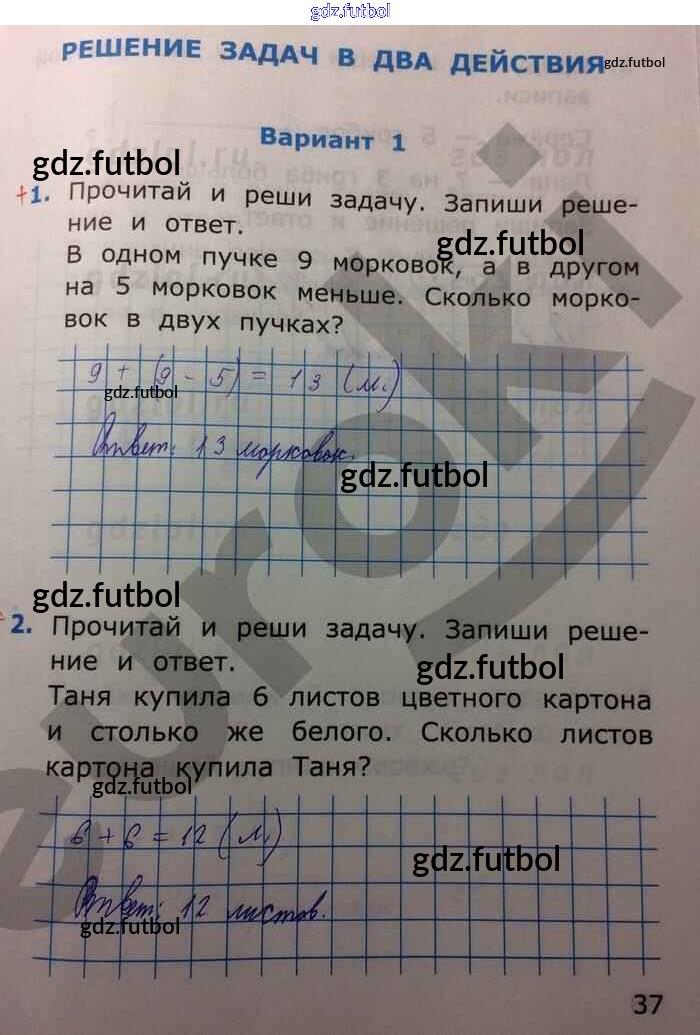 gdz.futbol
РЕШЕНИЕ ЗАДАЧ В ДВА ДЕЙСТВИЯ
gdz.futbol
Вариант 1
gdz.futbol
1. Прочитай и реши задачу. Запиши реше-
ние и ответ.
gdz.futbol
В одном пучке 9 морковок, а в другом
на 5 морковок меньше. Сколько морко-
вок в двух пучках?
9 + (9 - 5) = 13 (м.)
gdz.futbol
Ответ: 13 морковок.
gdz.futbol
gdz.futbol
2. Прочитай и реши задачу. Запиши реше-
ние и ответ.
gdz.futbol
Таня купила 6 листов цветного картона
и столько же белого. Сколько листов
картона купила Таня?
gdz.futbol
6 + 6 = 12 (л.)
gdz.futbol
Ответ: 12 листов.
gdz.futbol
37
gdz.futbol
euroki